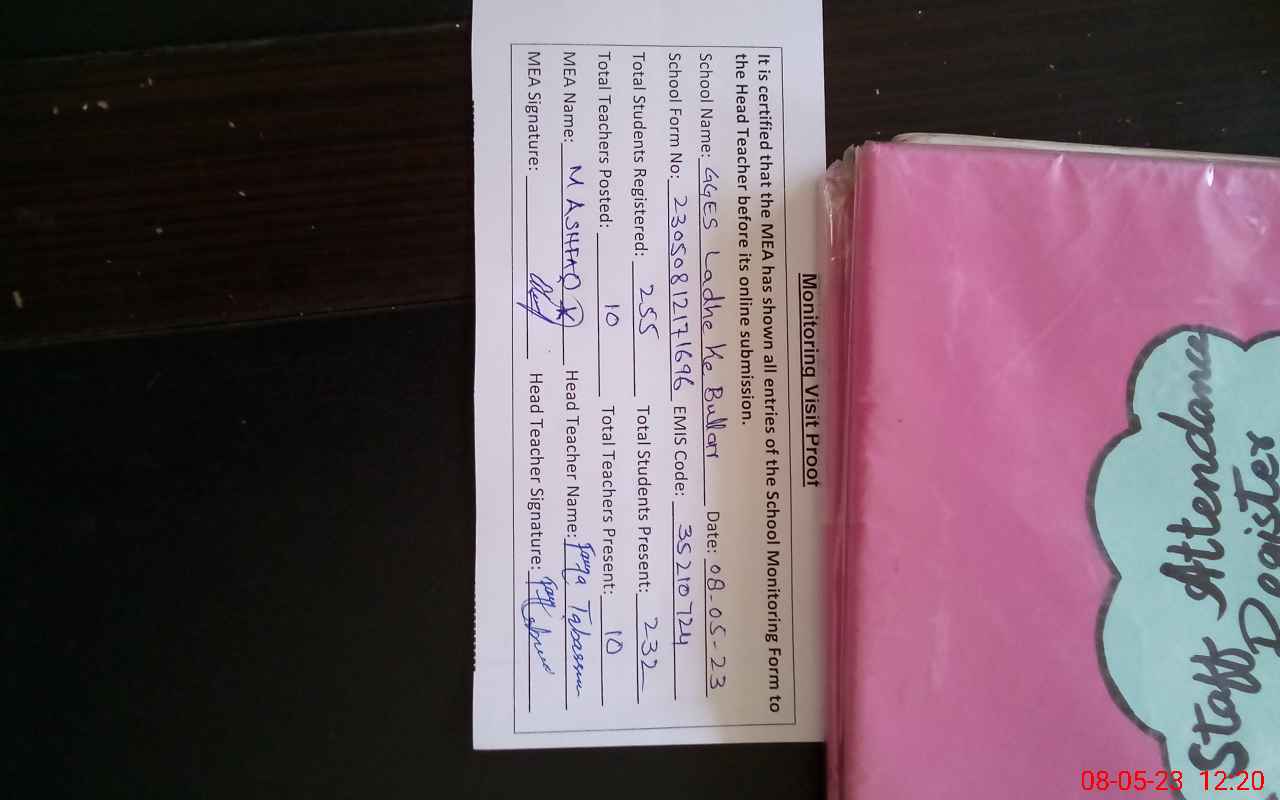 Monitoring Visit Proof
It is certified that the MEA has shown all entries of the School Monitoring Form to
the Head Teacher before its online submission.
School Name: GGES Ladhe Ke Bullar Date: 08-05-23
School Form No: 23050812171696 EMIS Code: 35210724
Total Students Registered: 255 Total Students Present: 232
Total Teachers Posted: 10 Total Teachers Present: 10
MEA Name: M ASHFAQ Head Teacher Name: Tabassum
MEA Signature: Head Teacher Signature:
Staff Attendance
Register
08-05-23 12.20